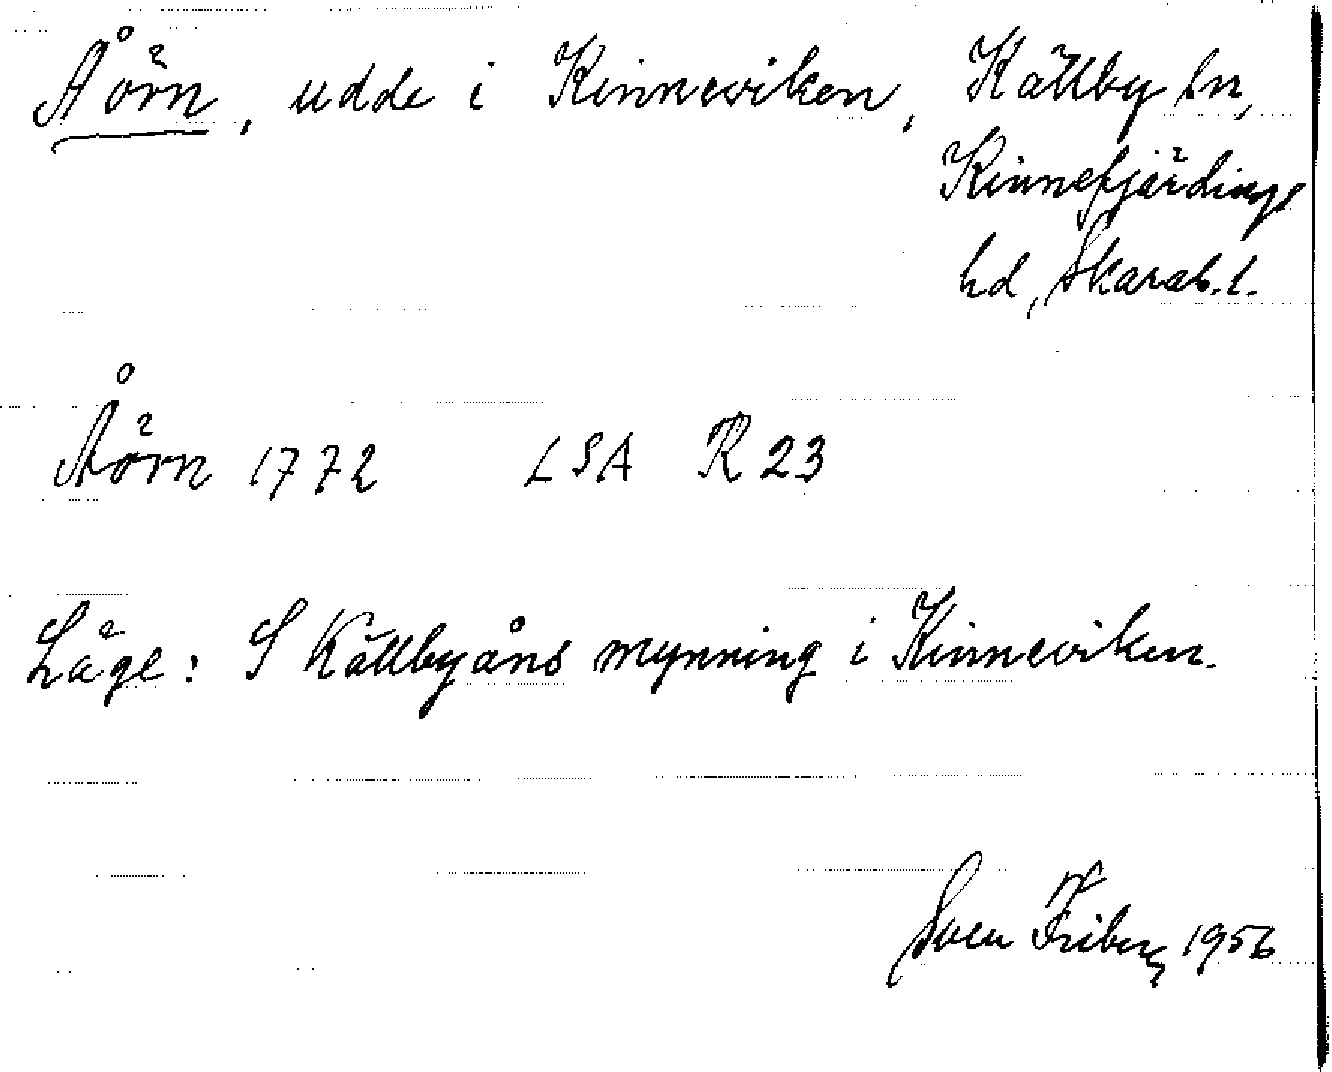 Åörn, udde i Kinneviken, Källby sn,
Kinnefjärdings
hd, Skarab. l.
Åörn 1772 LSA R 23
Läge: S Källbyåns mynning i Kinneviken.
Sven Friberg 1956